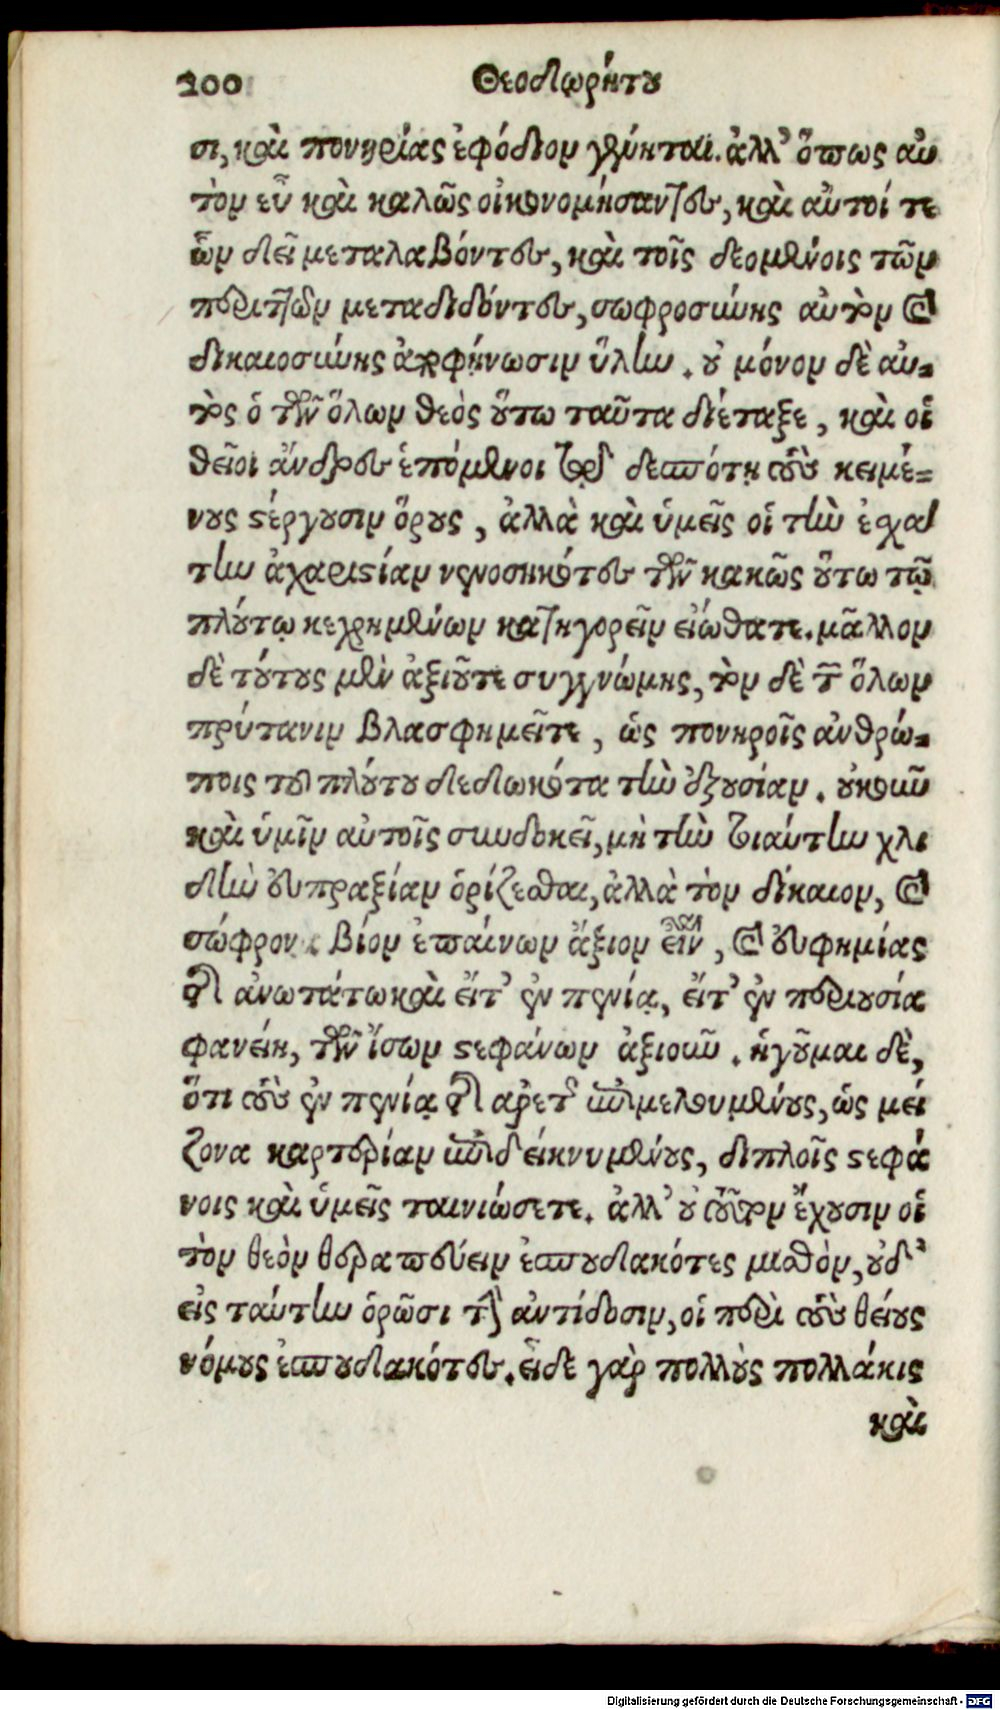 200 Θεοδωρήτου
σι, καὶ πονηρίας ἐφόδιον γένηται. ἀλλ' ὅπως αὐ
τὸν εὖ καὶ καλῶς οἰκονομήσαντες, καὶ αὐτοί τε
ὧν δεῖ μεταλαβόντες, καὶ τοῖς δεομένοις τῶν
περιττῶν μεταδιδόντες, σωφροσύνης αὐτὸν καὶ
δικαιοσύνης ἀποφήνωσιν ὕλην. οὐ μόνον δὲ αὐ-
τὸς ὁ τῶν ὅλων θεὸς οὕτω ταῦτα διέταξε, καὶ οἱ
θεῖοι ἄνδρες ἑπόμενοι τῷ δεσπότῃ τοὺς κειμέ-
νους στέργουσιν ὅρους, ἀλλὰ καὶ ὑμεῖς οἱ τὴν ἐσχά
την ἀχαριστίαν νενοσηκότες τῶν κακῶς οὕτω τῷ
πλούτῳ κεχρημένων κατηγορεῖν εἰώθατε. μᾶλλον
δὲ τούτους μὲν ἀξιοῦτε συγγνώμης, τὸν δὲ τῶν ὅλων
πρύτανιν βλασφημεῖτε, ὡς πονηροῖς ἀνθρώ-
ποις τοῦ πλούτου δεδωκότα τὴν ἐξουσίαν. οὐκοῦν
καὶ ὑμῖν αὐτοῖς συνδοκεῖ, μὴ τὴν τοιαύτην χλι
δὴν εὐπραξίαν ὁρίζεσθαι, ἀλλὰ τὸν δίκαιον, καὶ
σώφρονα βίον ἐπαίνων ἄξιον εἶναι, καὶ εὐφημίας
τῆς ἀνωτάτω καὶ εἴτ' ἐν πενίᾳ, εἴτ' ἐν περιουσίᾳ
φανείη, τῶν ἴσων στεφάνων ἀξιοῦν. ἡγοῦμαι δὲ,
ὅτι τοὺς ἐν πενίᾳ τῆς ἀρετῆς ἐπιμελουμένους, ὡς μεί
ζονα καρτερίαν ἐπιδεικνυμένους, διπλοῖς στεφά
νοις καὶ ὑμεῖς ταινιώσετε. ἀλλ' οὐ τοῦτον ἔχουσιν οἱ
τὸν θεὸν θεραπεύειν ἐσπουδακότες μισθὸν, οὐδ'
εἰς ταύτην ὁρῶσι τὴν ἀντίδοσιν, οἱ περὶ τοὺς θείους
νόμους ἐσπουδακότες. εἶδε γὰρ πολλοὺς πολλάκις
καὶ
Digitalisierung gefördert durch die Deutsche Forschungsgemeinschaft - DFG